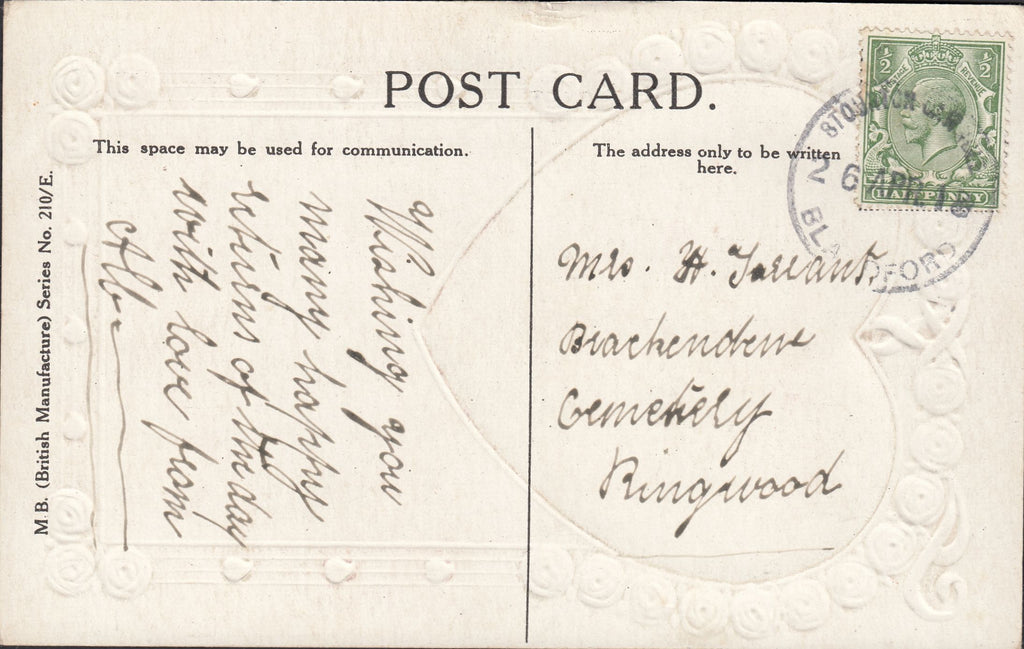 POST CARD.
This space may be used for communication.
The address only to be written
here.
M.B. (British Manufacture) Series No. 210/E.
Wishing you
many happy
returns of the day
with love from
Alb
Mrs. H. Tarrant,
Cemetery
Ringwood
½ ½
POSTAGE REVENUE
HALFPENNY
26 APR 13
BLANDFORD